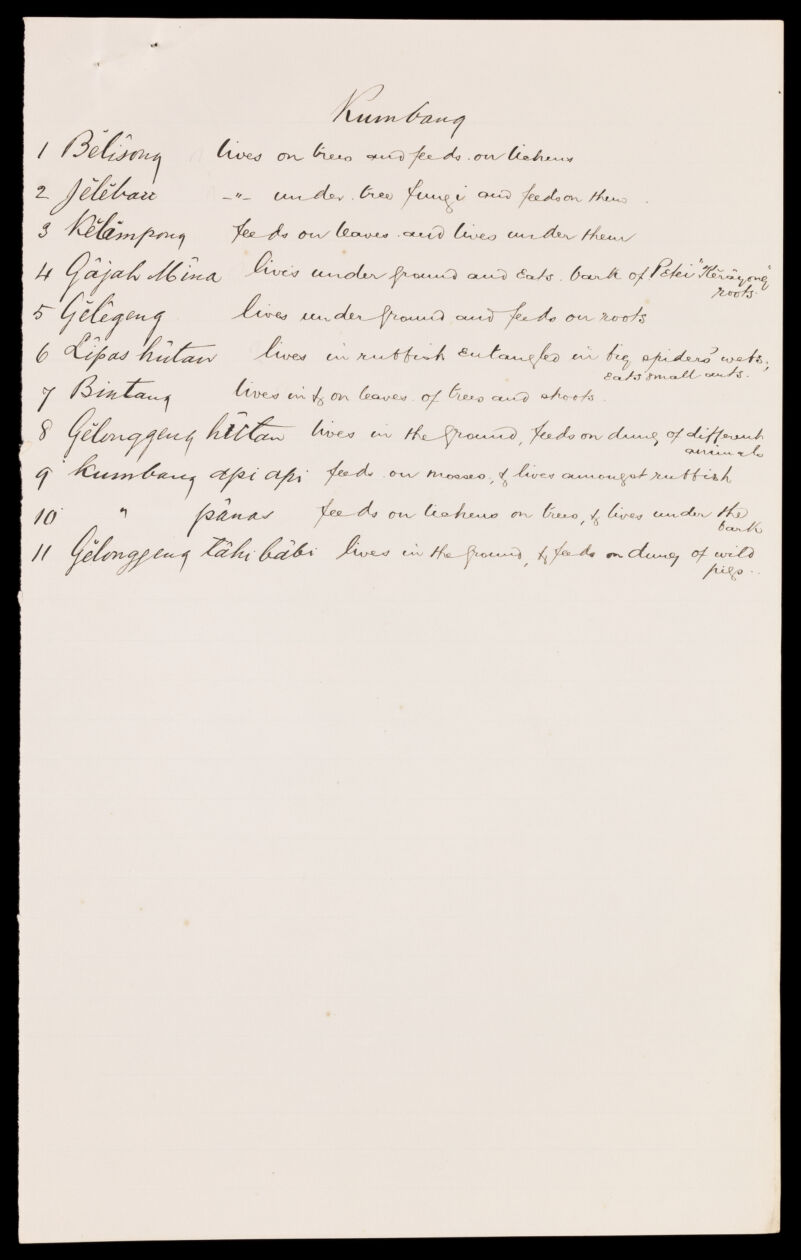 Kumbang
1 Bĕlîsong lives on trees and feeds on lichens
2 Jĕlĕbau -"- under tree fungi and feeds on them.
3 Kĕlĕmpong feeds on leaves and lives under them
4 Gâjah Mîna lives under ground and eats bark of Petei "Kĕrâyong"
roots.
5 Gĕlêgeng lives under ground and feeds on roots
6 Lîpas hûtan lives in rubbish entangled in big spiders' webs;
eats small ants.
7 Bintang lives in & on leaves of trees and shoots.
8 Gĕlonggeng hûtan lives in the ground, feeds on dung of different
animals
9 Kumbang âpi âpi feeds on mosses, & lives amongst rubbish
10 " pânas feeds on lichens on trees, & lives under the
bark
11 Gĕlonggeng tâhi bâbi lives in the ground, & feeds on dung of wild
pigs..